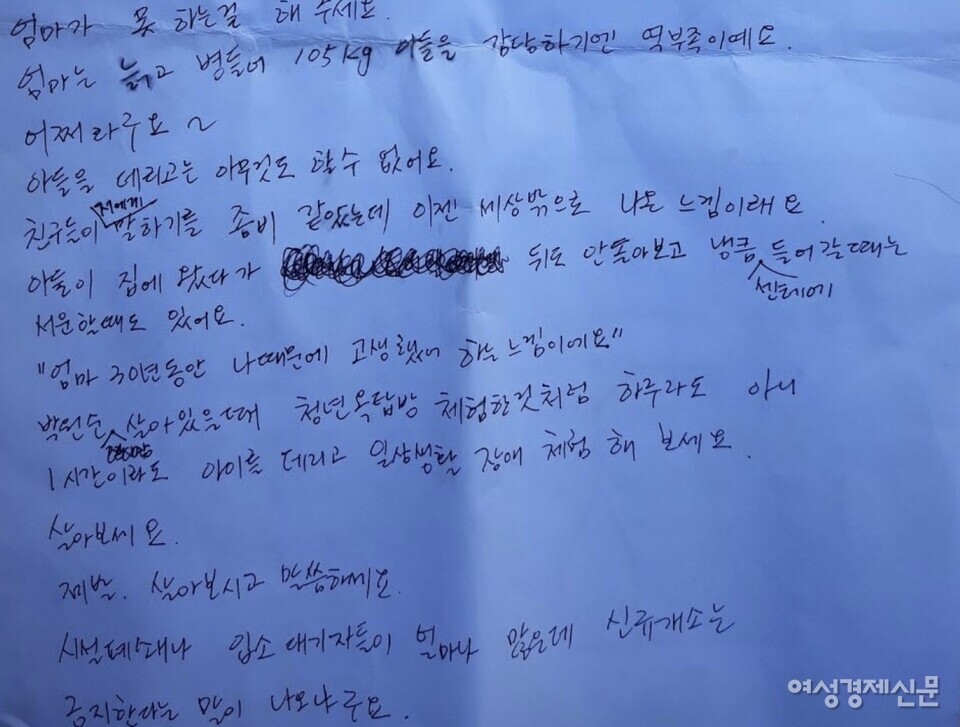 엄마가 못 하는걸 해 주세요.
엄마는 늙고 병들어 105kg 아들을 감당하기엔 역부족이예요.
어쩌라구요~
아들을 데리고는 아무것도 할수 없어요.
친구들이 저에게 말하기를 좀비 같았는데 이젠 세상밖으로 나온 느낌이래요.
아들이 집에 왔다가 뒤도 안돌아보고 냉큼 센터에 들어갈때는
서운할때도 있어요.
"엄마 30년동안 나때문에 고생했어 하는 느낌이에요"
박원순 살아있을때 청년옥탑방 체험한것처럼 하루라도 아니
1시간이라도 아이를 데리고 일상생활 장애 체험 해 보세요.
살아보세요.
제발. 살아보시고 말씀하세요.
시설폐쇄나 입소대기자들이 얼마나 많은데 신규개소는
금지한다는 말이 나오냐구요.
여성경제신문